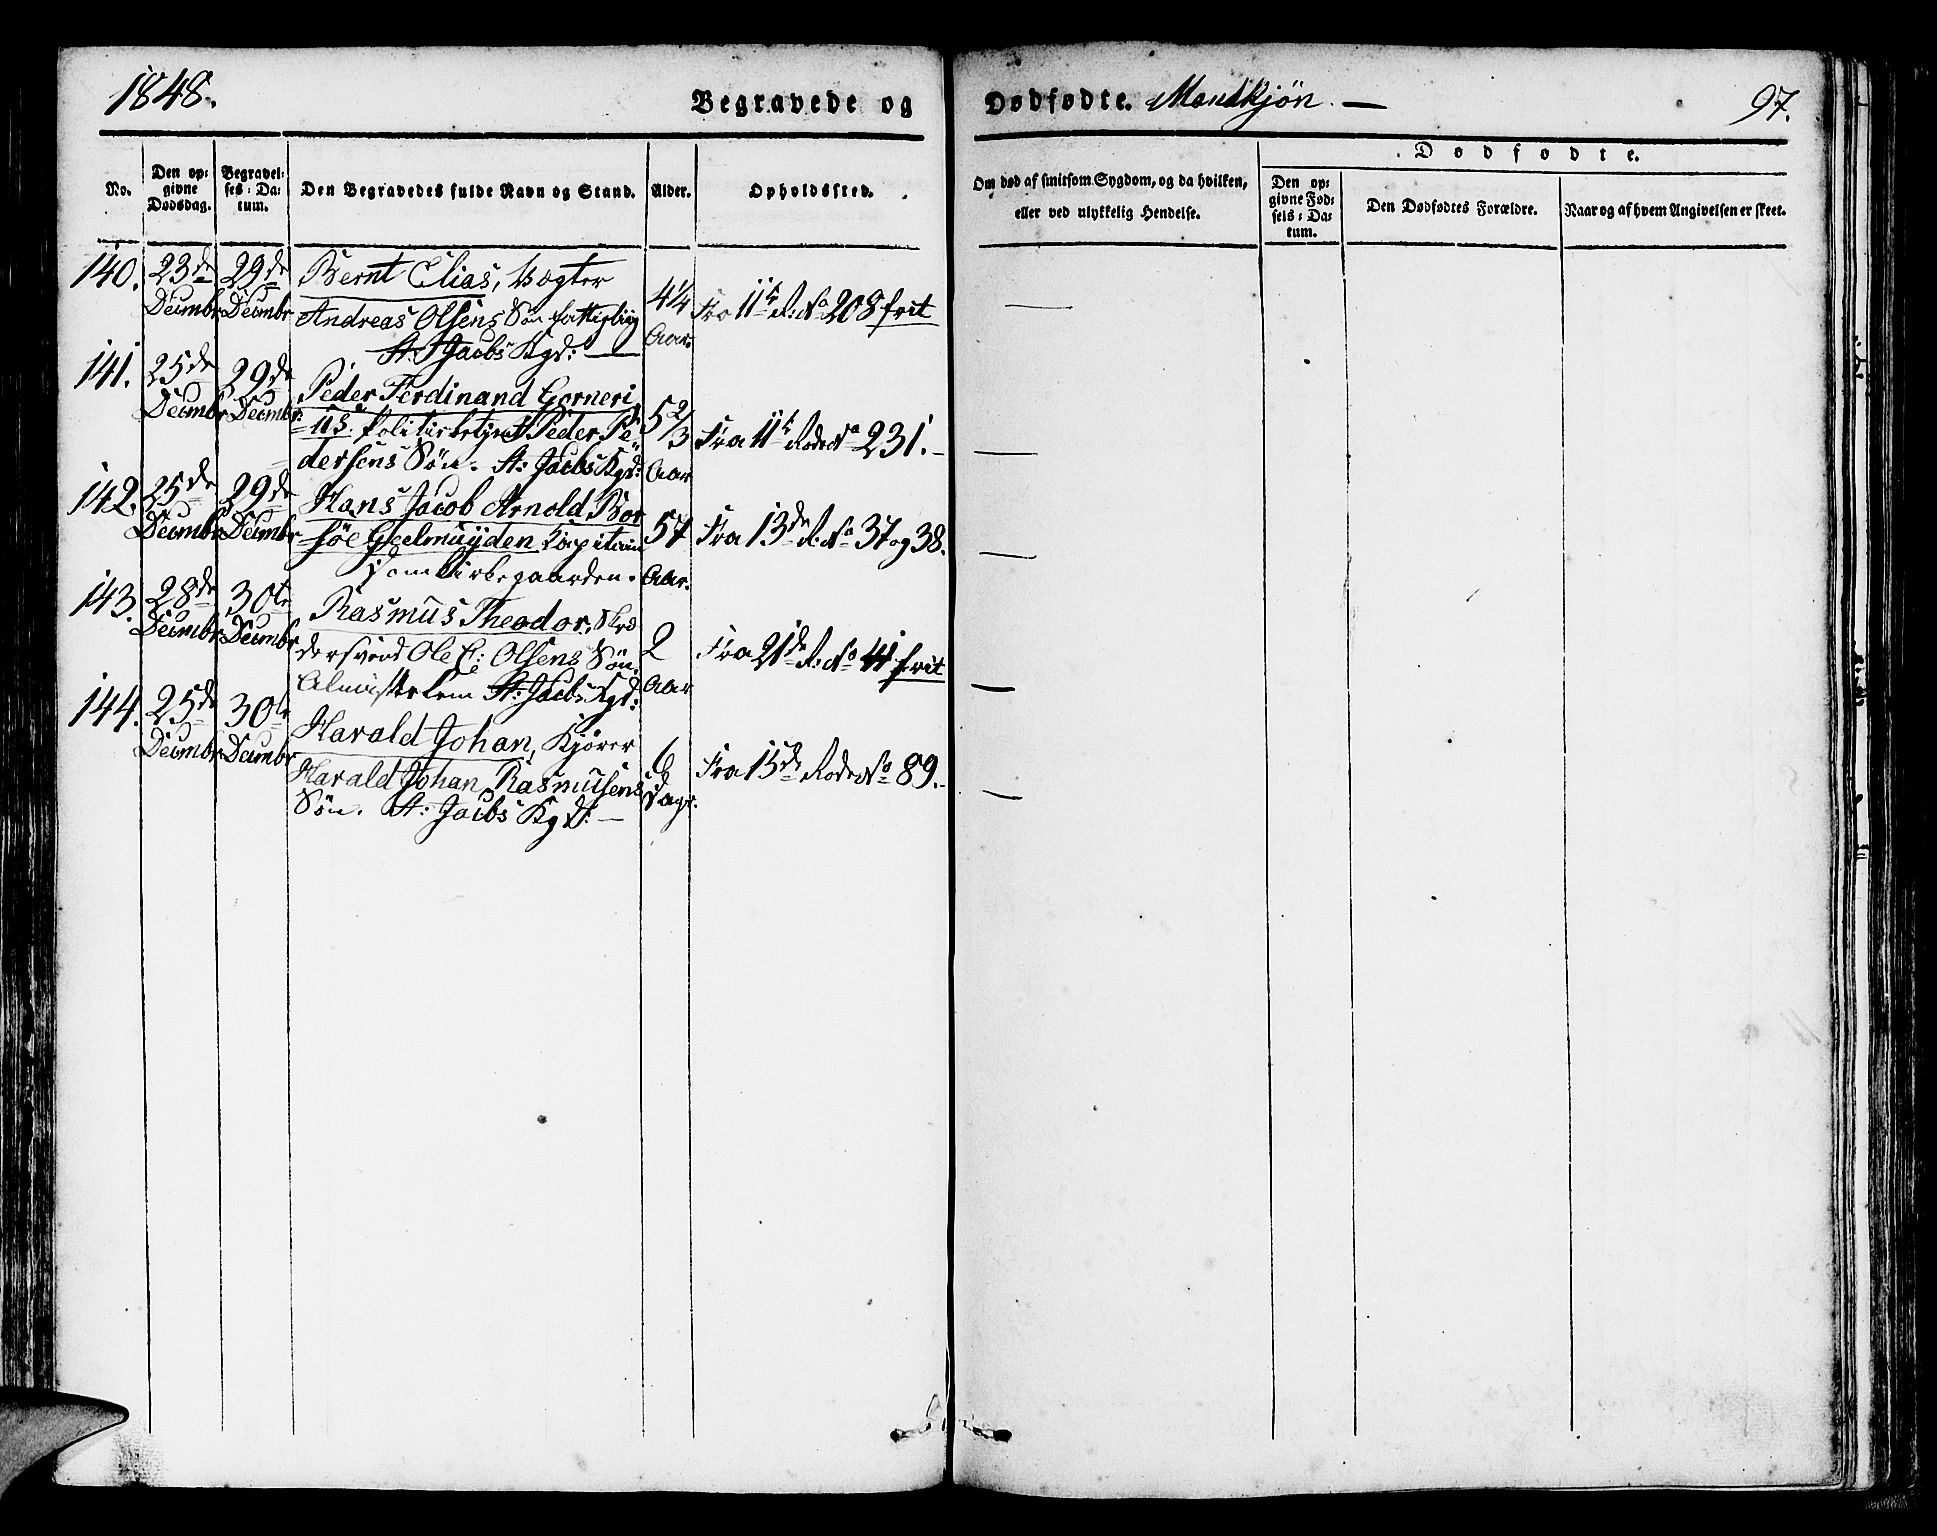 1848.
Begravede og
Dødfødte. Mandkjøn. —
97.
No.
Den op-
givne
Dødsdag.
Begravel-
ses-Da-
tum.
Den Begravedes fulde Navn og Stand.
Alder.
Opholdssted.
Om død af smitsom Sygdom, og da hvilken,
eller ved ulykkelig Hendelse.
Dødfødte.
Den op-
givne Fød-
sels-Da-
tum.
Den Dødfødtes Forældre.
Naar og af hvem Angivelsen er skeet.
140. 23de Decembr 29de Decembr
Bernt Elias, Vægter
Andreas Olsens Søn
St. Jacobs Kgd: —
4¼ Aar.
Fra 11te R: No 208 frit
—
141. 25de Decembr 29de Decembr
Peder Ferdinand Corneri
us. Politiebetjent Peder Pe-
dersens Søn. St: Jacobs Kgd:
5 2/3 Aar
Fra 11te Rode No 231. —
—
142. 25de Decembr 29de Decembr
Hans Jacob Arnold Bor
söe Geelmuyden Kapitain
Domkirkegaarden.
57 Aar.
Fra 13de R: No 37 og 38.
—
143. 28de Decembr 30te Decembr
Rasmus Theodor, Skræ
dersvend Ole E: Olsens Søn.
St: Jacobs Kgd:
2 Aar
Fra 21de R: No 41 frit
—
144. 25de Decembr 30te Decembr
Harald Johan, Kjører
Harald Johan Rasmusens
Søn. St: Jacobs Kgd: —
6 Dage.
Fra 15de Rode No 89. —
—